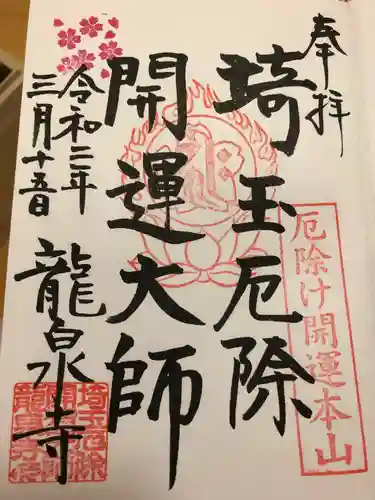 奉拝
厄除け開運本山
埼玉厄除
開運大師
令和二年
三月十五日
龍泉寺